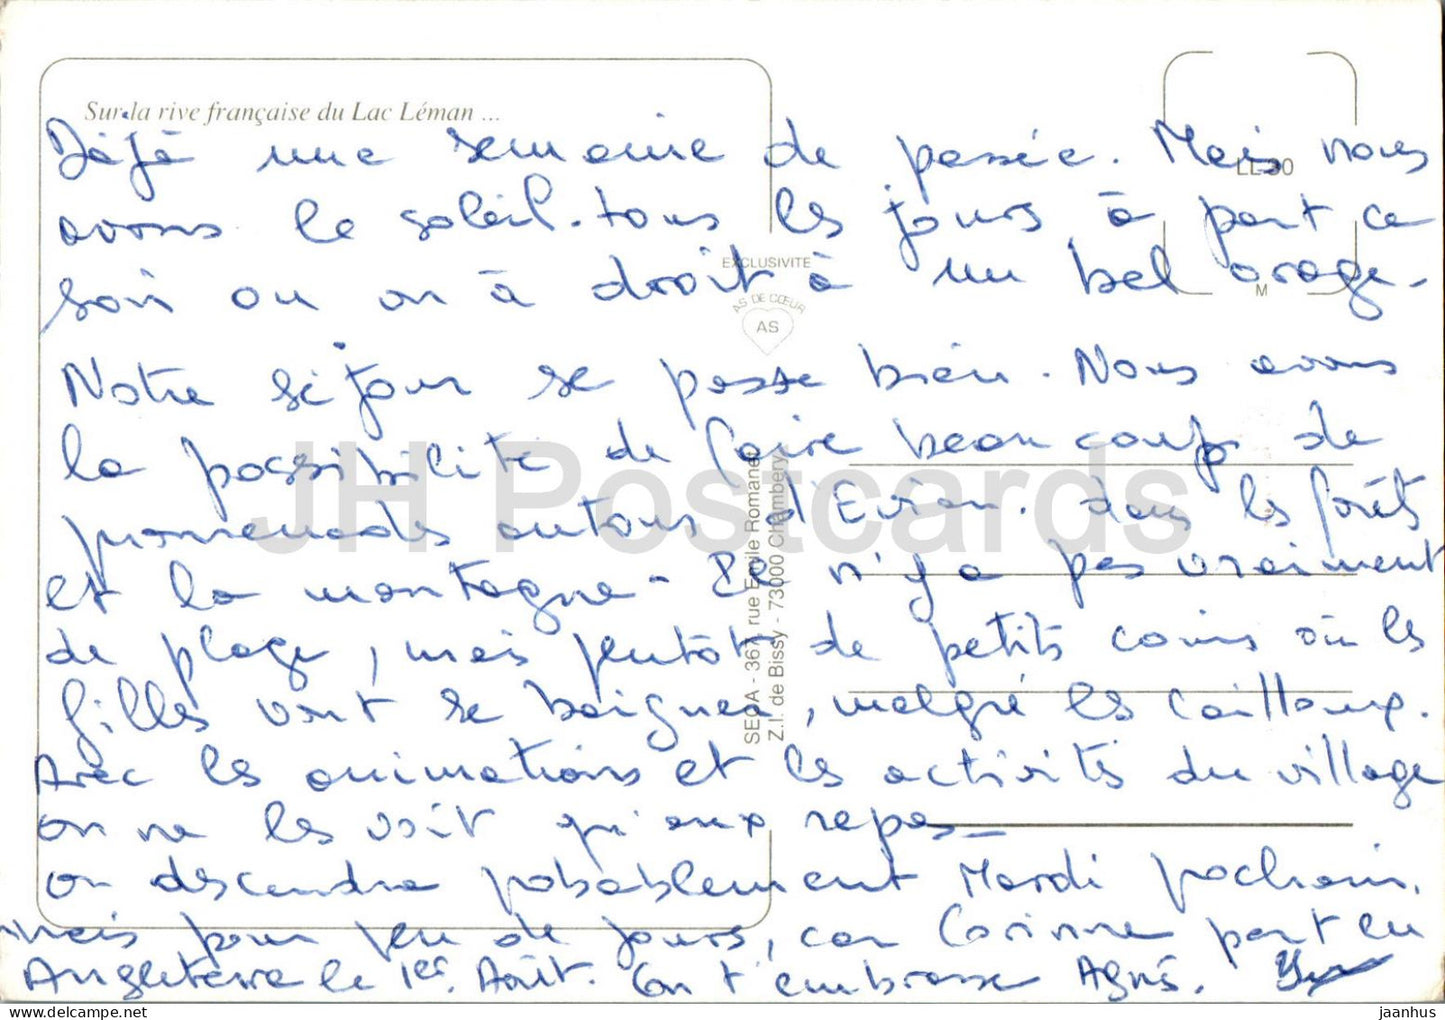 Sur la rive française du Lac Léman ...
Déjà une semaine de passée. Mais nous
avons le soleil tous les jours à part ce
soir ou on à droit à un bel orage.
Notre séjour se passe bien. Nous avons
la possibilité de faire beaucoup de
promenades autour d'Evian. dans les forêts
et la montagne - Il n'y a pas vraiment
de plage, mais plutôt de petits coins où les
filles vont se baigner, malgré les cailloux.
Avec les animations et les activités du village
on ne les voit qu'aux repas -
on descendra probablement Mardi prochain.
mais pour peu de jours, car Corinne part en
Angleterre le 1er Août. On t'embrasse Agnès.
LL 30
M
EXCLUSIVITE
AS DE CŒUR
AS
SEGA - 367, rue Emile Romanet
Z.I. de Bissy - 73000 Chambéry
JH Postcards
jaanhus
delcampe.net